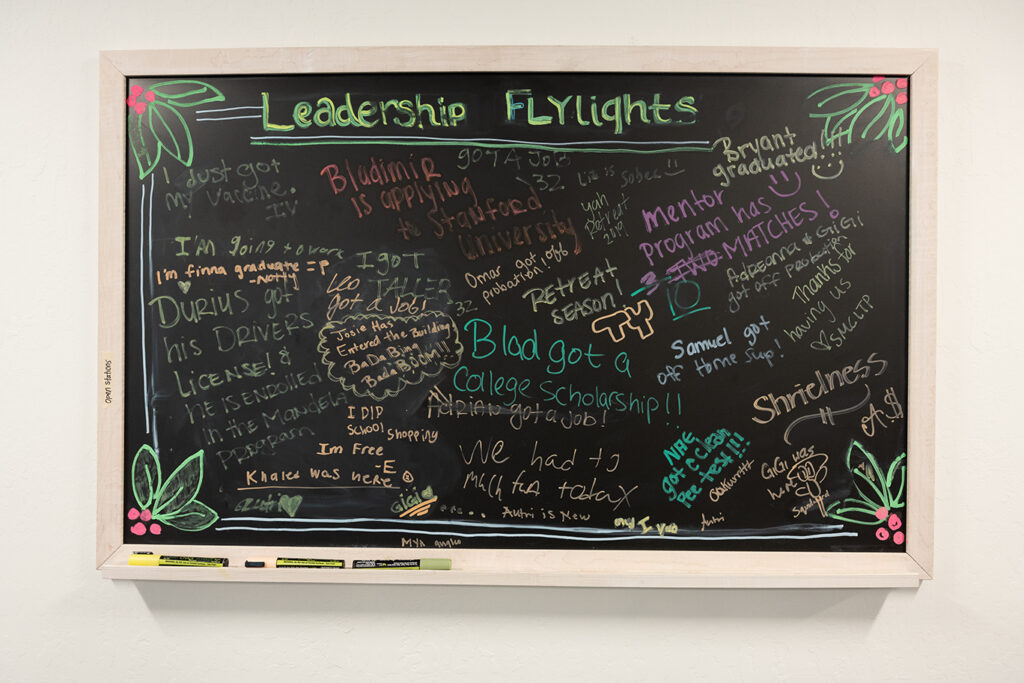 Leadership FLYlights
I Just got
my Vaccine.
I.V
Bladimir
is applying
to Stanford
University
GOT A JOB
32
Bryant
graduated!!!
yah
Retreat
2019
mentor
Program has
3 TWO MATCHES!
I'm finna graduate =P
-natty
I GOT
TALLER
32
Leo
got a Job!
Omar got
probation! off
RETREAT
SEASON!
TY
Adreanna & GiGi
got off probation
Thanks for
having us
SMCLTP
DURIUS got
his DRIVERS
LICENSE! &
HE IS ENROLLED
In the Mandela
PROGRAM
Josie Has
Entered the Building!
BaDa Bing
Bada BOOM!!!
Blad got a
College Scholarship!!
Samuel got
off Home Sup!
ADRIAN got a job!
Shrieldness
I DID
SCHOOL Shopping
Im Free
-E
Khaled was here
We had to
much fun today
NAE
got C Clean
Pee-test!!!
GiGi was
here
GiGi
Autri is New
Autri
Open Stations